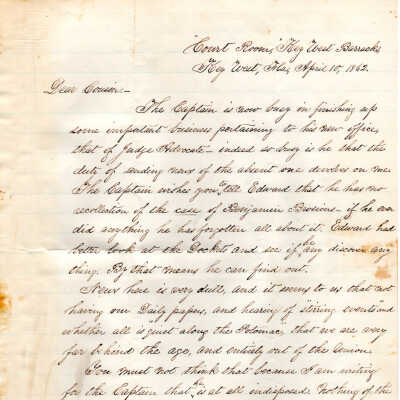 "Court Room," Key West Barracks
Key West, Fla, April 10, 1862.
Dear Cousin:-
The Captain is now busy in finishing up
some important business pertaining to his new office,
that of Judge Advocate - indeed so busy is he that the
duty of sending news of the absent one devolves on me.
The Captain wishes you tell Edward that he has no
recollection of the case of Benjamin - if he ever
did anything he has forgotten all about it. Edward had
better look at the Dockets and see if any discover any
thing. By that means he can find out.
News here is very dull, and it seems to us that not
having our Daily papers, and hearing of stirring events and
whether all is quiet along the Potomac, that we are very
far behind the age, and entirely out of the Union.
You must not think that because I am writing
for the Captain that he is at all indisposed. Nothing of the